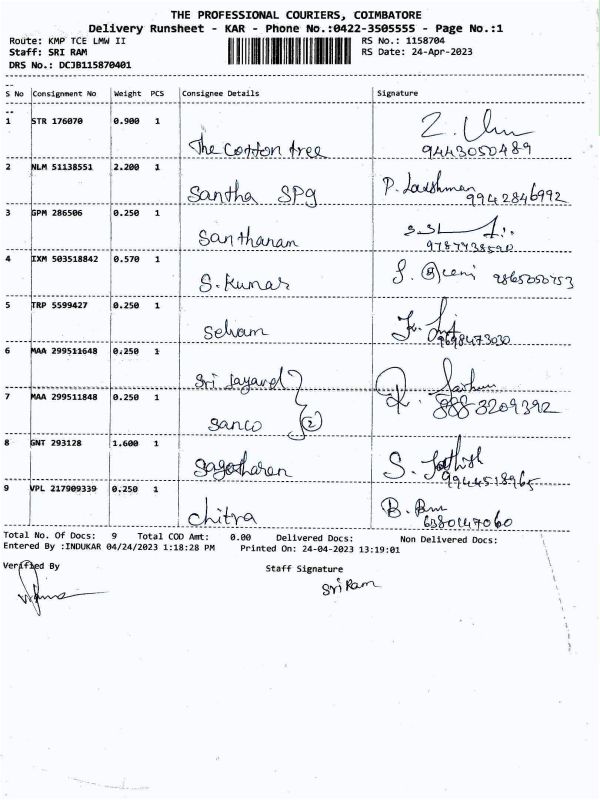 THE PROFESSIONAL COURIERS, COIMBATORE
Delivery Runsheet - KAR - Phone No.:0422-3505555 - Page No.:1
Route: KMP TCE LMW II
RS No.: 1158704
Staff: SRI RAM
RS Date: 24-Apr-2023
DRS No.: DCJB115870401
S No Consignment No Weight PCS Consignee Details Signature
1 STR 176070 0.900 1
The cotton tree 9443050489
2 NLM 51138551 2.200 1 P. Lakshman
Santha SPg 9942846992
3 GPM 286506 0.250 1
Santhanam
4 IXM 503518842 0.570 1
S. Kumar 9865050753
5 TRP 5599427 0.250 1
Selvam 9698473030
6 MAA 299511648 0.250 1
Sri Jayavel
7 MAA 299511848 0.250 1
Sanco 2 888 3209392
8 GNT 293128 1.600 1
S. Jothish
9944518965
9 VPL 217909339 0.250 1
chitra 6380147060
Total No. Of Docs: 9 Total COD Amt: 0.00 Delivered Docs: Non Delivered Docs:
Entered By :INDUKAR 04/24/2023 1:18:28 PM Printed On: 24-04-2023 13:19:01
Verified By Staff Signature
Sri Ram